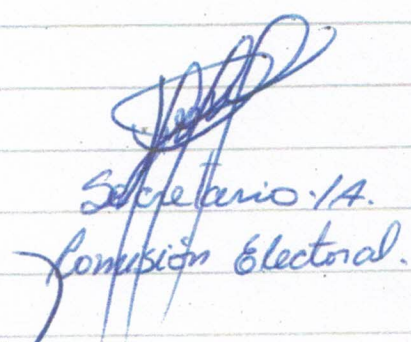 Secretario./A.
Comisión Electoral.